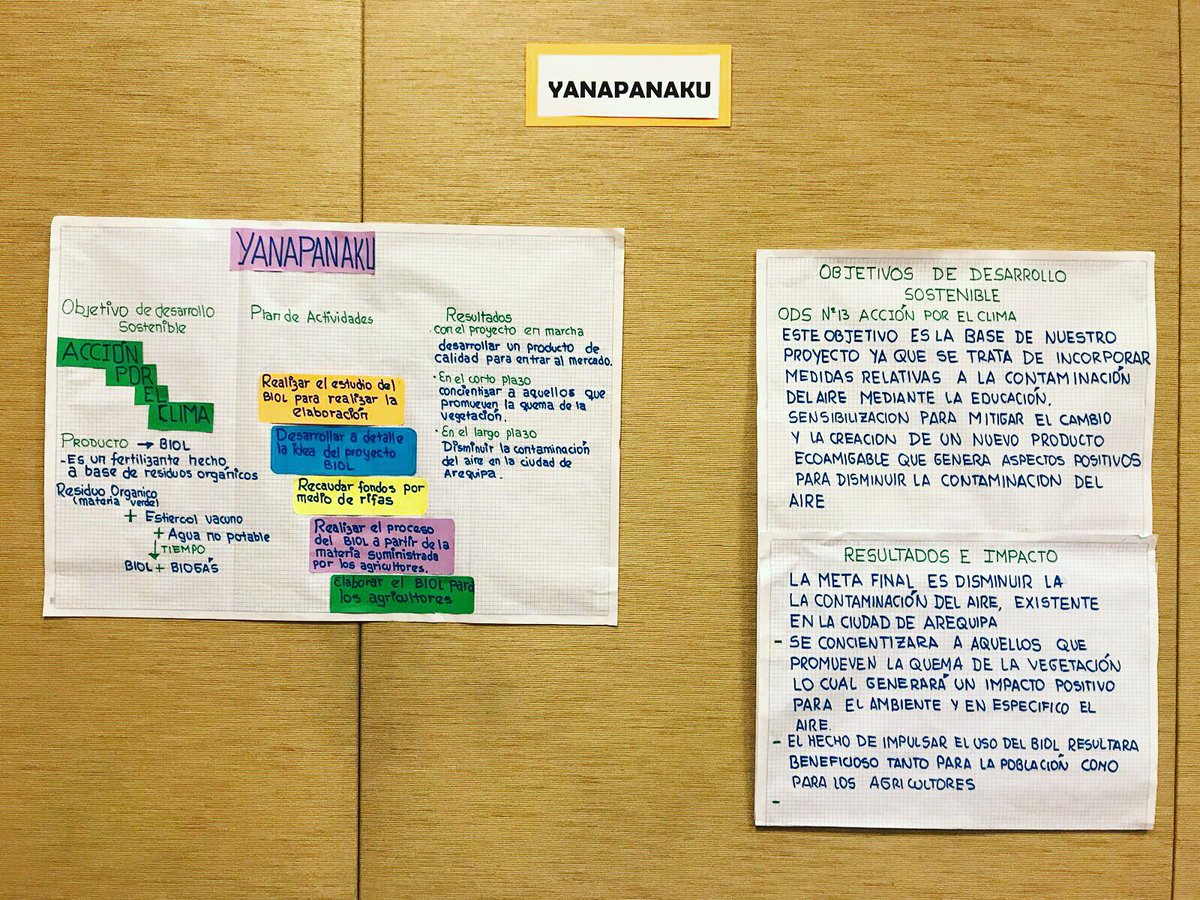 YANAPANAKU
YANAPANAKU
Objetivo de desarrollo
Sostenible
ACCIÓN
POR
EL
CLIMA
PRODUCTO → BIOL
- Es un fertilizante hecho
a base de residuos orgánicos
Residuo Orgánico
(materia verde)
+ Estiercol vacuno
+ Agua no potable
↓ TIEMPO
BIOL + BIOGÁS
Plan de Actividades
Realizar el estudio del
BIOL para realizar la
elaboración
Desarrollar a detalle
la idea del proyecto
BIOL
Recaudar fondos por
medio de rifas
Realizar el proceso
del BIOL a partir de la
materia suministrada
por los agricultores.
Elaborar el BIOL para
los agricultores
Resultados
· con el proyecto en marcha
desarrollar un producto de
calidad para entrar al mercado.
· En el corto plazo
concientizar a aquellos que
promueven la quema de la
vegetación.
· En el largo plazo
Disminuir la contaminación
del aire en la ciudad de
Arequipa.
OBJETIVOS DE DESARROLLO
SOSTENIBLE
ODS N°13 ACCIÓN POR EL CLIMA
ESTE OBJETIVO ES LA BASE DE NUESTRO
PROYECTO YA QUE SE TRATA DE INCORPORAR
MEDIDAS RELATIVAS A LA CONTAMINACIÓN
DEL AIRE MEDIANTE LA EDUCACIÓN,
SENSIBILIZACION PARA MITIGAR EL CAMBIO
Y LA CREACION DE UN NUEVO PRODUCTO
ECOAMIGABLE QUE GENERA ASPECTOS POSITIVOS
PARA DISMINUIR LA CONTAMINACION DEL
AIRE
RESULTADOS E IMPACTO
LA META FINAL ES DISMINUIR LA
LA CONTAMINACIÓN DEL AIRE, EXISTENTE
EN LA CIUDAD DE AREQUIPA
- SE CONCIENTIZARA A AQUELLOS QUE
PROMUEVEN LA QUEMA DE LA VEGETACIÓN
LO CUAL GENERARÁ UN IMPACTO POSITIVO
PARA EL AMBIENTE Y EN ESPECIFICO EL
AIRE.
- EL HECHO DE IMPULSAR EL USO DEL BIOL RESULTARA
BENEFICIOSO TANTO PARA LA POBLACIÓN COMO
PARA LOS AGRICULTORES
-